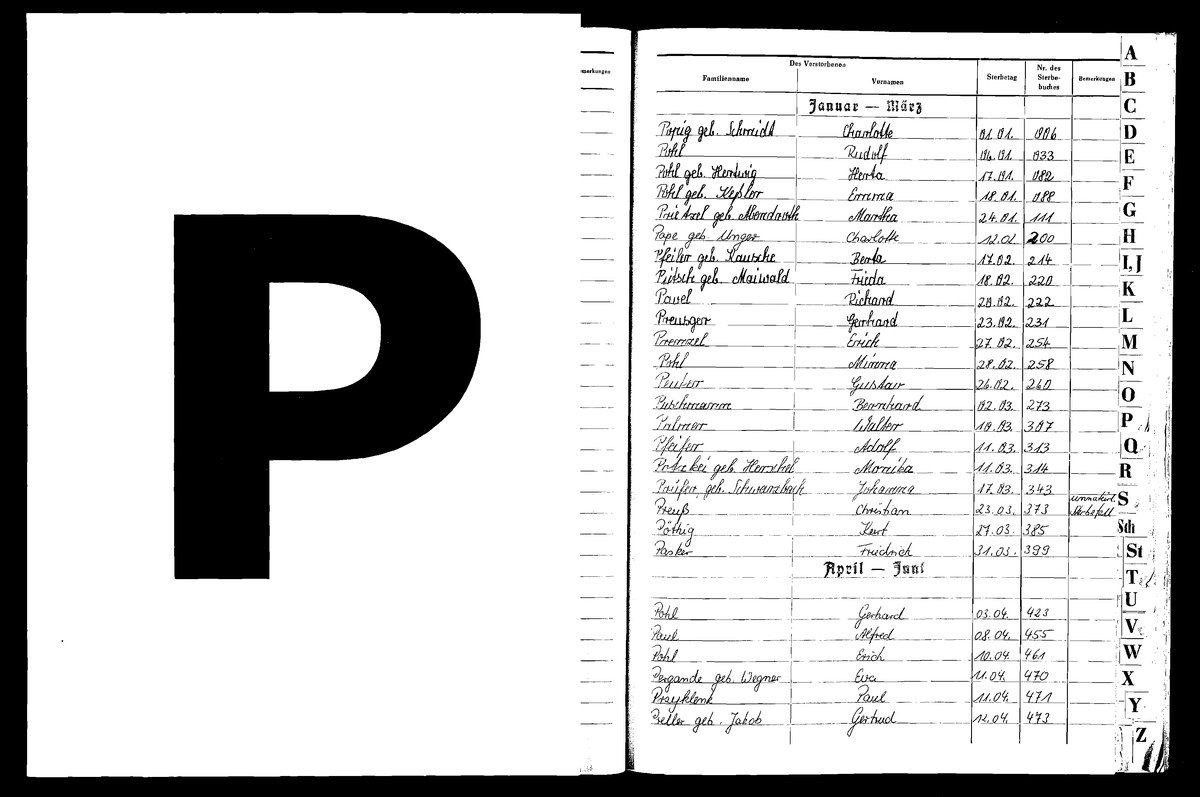 P
emerkungen
Des Verstorbenen
Familienname Vornamen Sterbetag Nr. des Sterbe-buches Bemerkungen
Januar — März
Popig geb. Schmidt Charlotte 01.01. 006
Pohl Rudolf 06.01. 033
Pohl geb. Hertwig Herta 17.01. 082
Pohl geb. Keßler Emma 18.01. 088
Prietzel geb. Martha 24.01. 111
Pape geb. Unger Charlotte 12.02. 200
Pfeiler geb. Kausche Berta 17.02. 214
Pietsch geb. Maiwald Frieda 18.02. 220
Pavel Richard 20.02. 222
Preusger Gerhard 23.02. 231
Premzel Erich 27.02. 254
Pohl Minna 28.02. 258
Peuker Gustav 26.02. 260
Puschmann Bernhard 02.03. 273
Palmer Walter 10.03. 307
Pfeifer Adolf 11.03. 313
geb. Herschel Monika 11.03. 314
Prüfer geb. Schwarzbach Johanna 17.03. 343
Preuß Christian 23.03. 373 unnatürl. Sterbefall
Pöthig Kurt 27.03. 385
Pasker Friedrich 31.03. 399
April — Juni
Pohl Gerhard 03.04. 423
Paul Alfred 08.04. 455
Pohl Erich 10.04. 461
Pergande geb. Wegner Eva 11.04. 470
Przyklenk Paul 11.04. 471
Peller geb. Jakob Gertrud 12.04. 473
A
B
C
D
E
F
G
H
I, J
K
L
M
N
O
P
Q
R
S
Sch
St
T
U
V
W
X
Y
Z